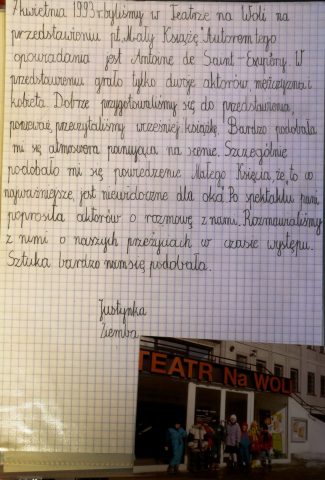 7 kwietnia 1993r byliśmy w Teatrze na Woli na
przedstawieniu pt. „Mały Książę". Autorem tego
opowiadania jest Antoine de Saint-Exupéry. W
przedstawieniu grało tylko dwoje aktorów, mężczyzna i
kobieta. Dobrze przygotowaliśmy się do przedstawienia,
ponieważ, przeczytaliśmy wcześniej książkę. Bardzo podobała
mi się atmosfera panująca na scenie. Szczególnie
podobało mi się powiedzenie Małego Księcia, że „to co
najważniejsze, jest niewidoczne dla oka. Po spektaklu pani
poprosiła aktorów o rozmowę z nami. Rozmawialiśmy
z nimi o naszych przeżyciach w czasie występu.
Sztuka bardzo nam się podobała.
Justynka
Ziemba
TEATR Na WOLI